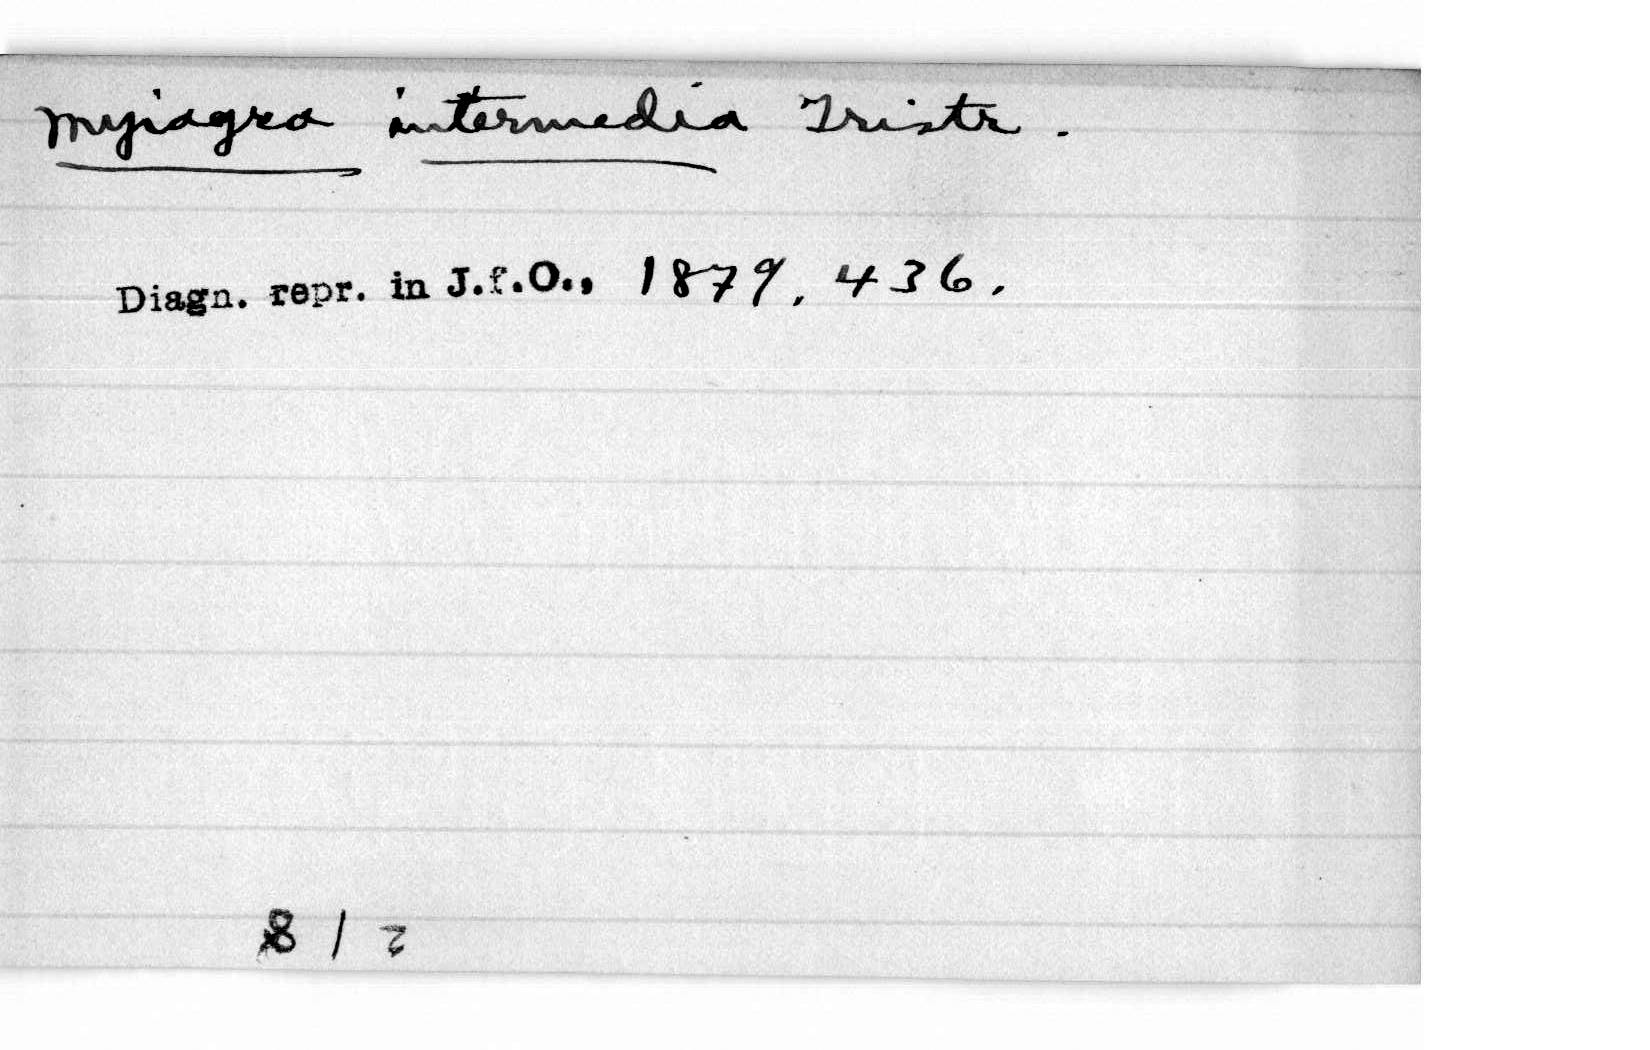 Myiagra intermedia Tristr.
Diagn. repr. in J.f.O., 1879, 436.
8 / 2